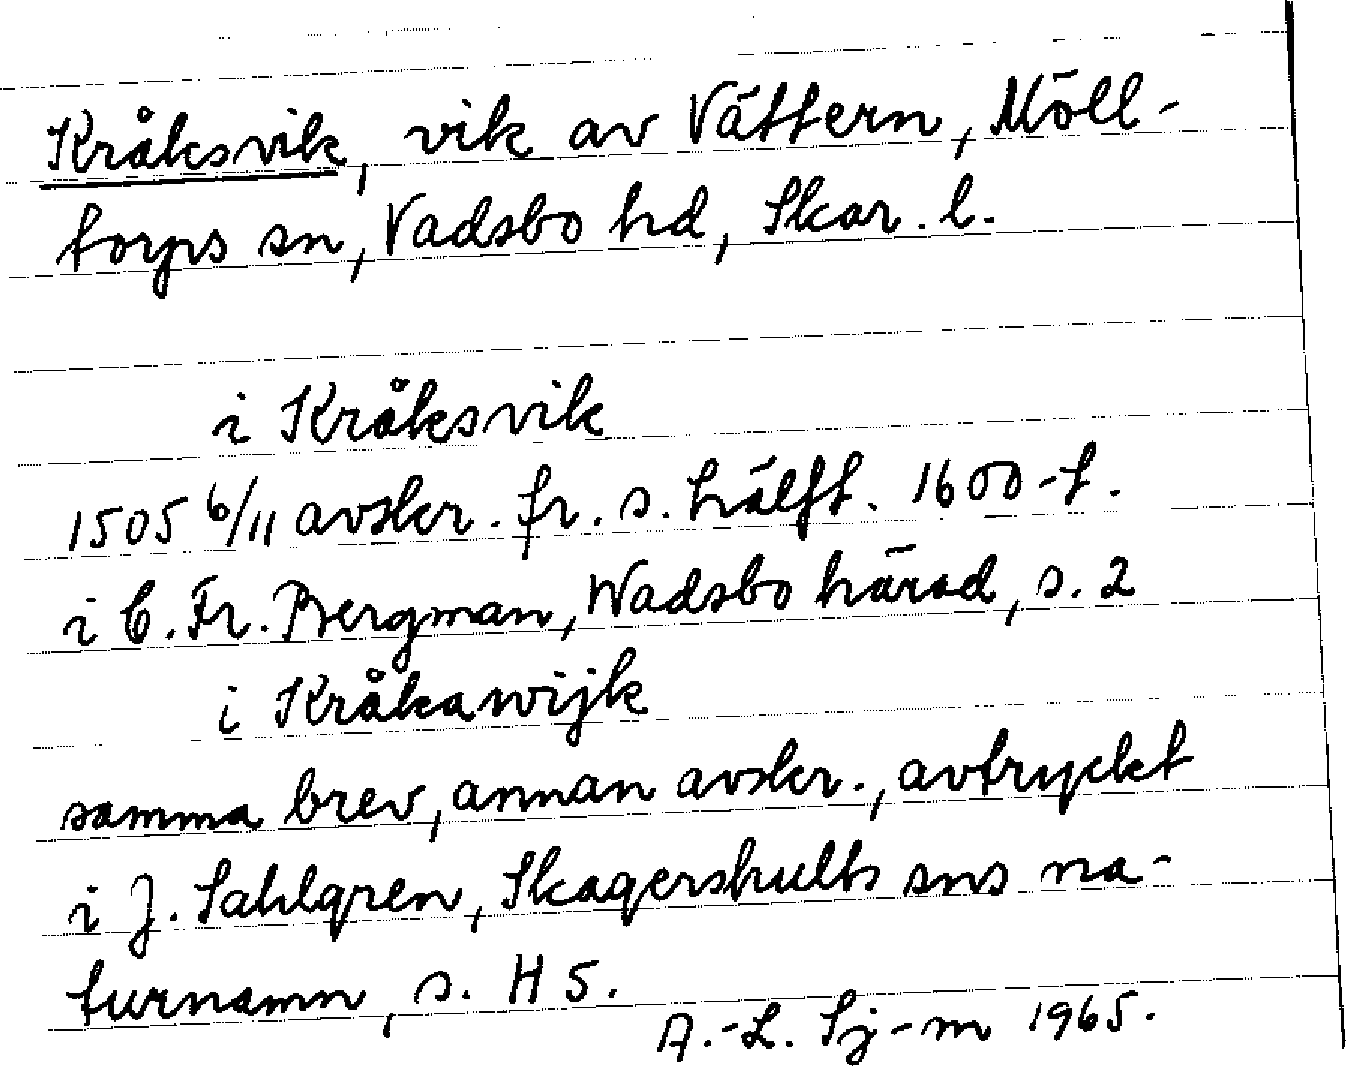 Kråksvik, vik av Vättern, Möll-
torps sn, Vadsbo hd, Skar. l.
i Kråksvik
1505 6/11 avskr. fr. s. hälft. 1600-t.
i C. Fr. Bergman, Wadsbo härad, s. 2
i Kråkawijk
samma brev, annan avskr., avtryckt
i J. Sahlgren, Skagershults sns na-
turnamn, s. H 5.
A.-L. Sj-m 1965.